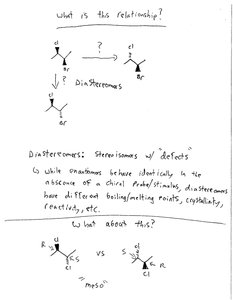 What is this relationship?
Cl
?
Cl
Br
Br
? Diastereomers
Cl
Br
Diastereomers: Stereoisomers w/ "defects"
↳ While enantiomers behave identically in the
abscence of a chiral probe/stimulus, diastereomers
have different boiling/melting points, crystallinity,
reactivity, etc.
What about this?
Cl
R
S
Cl
vs
S
Cl
R
Cl
"meso"